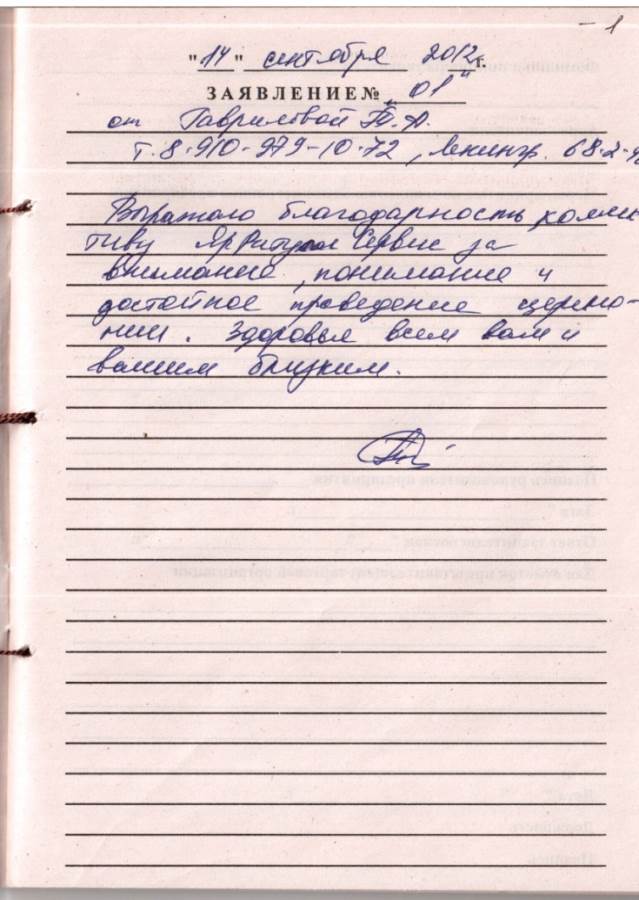 - 1
"14" сентября 2012 г.
ЗАЯВЛЕНИЕ № "01"
от Гавриловой Т.А.
т. 8-910-979-10-72, Ленингр. 68-2-
Выражаю благодарность коллек
тиву ЯрРитуал Сервис за
внимание, понимание и
достойное проведение церемо-
нии. Здоровья всем вам и
вашим близким.